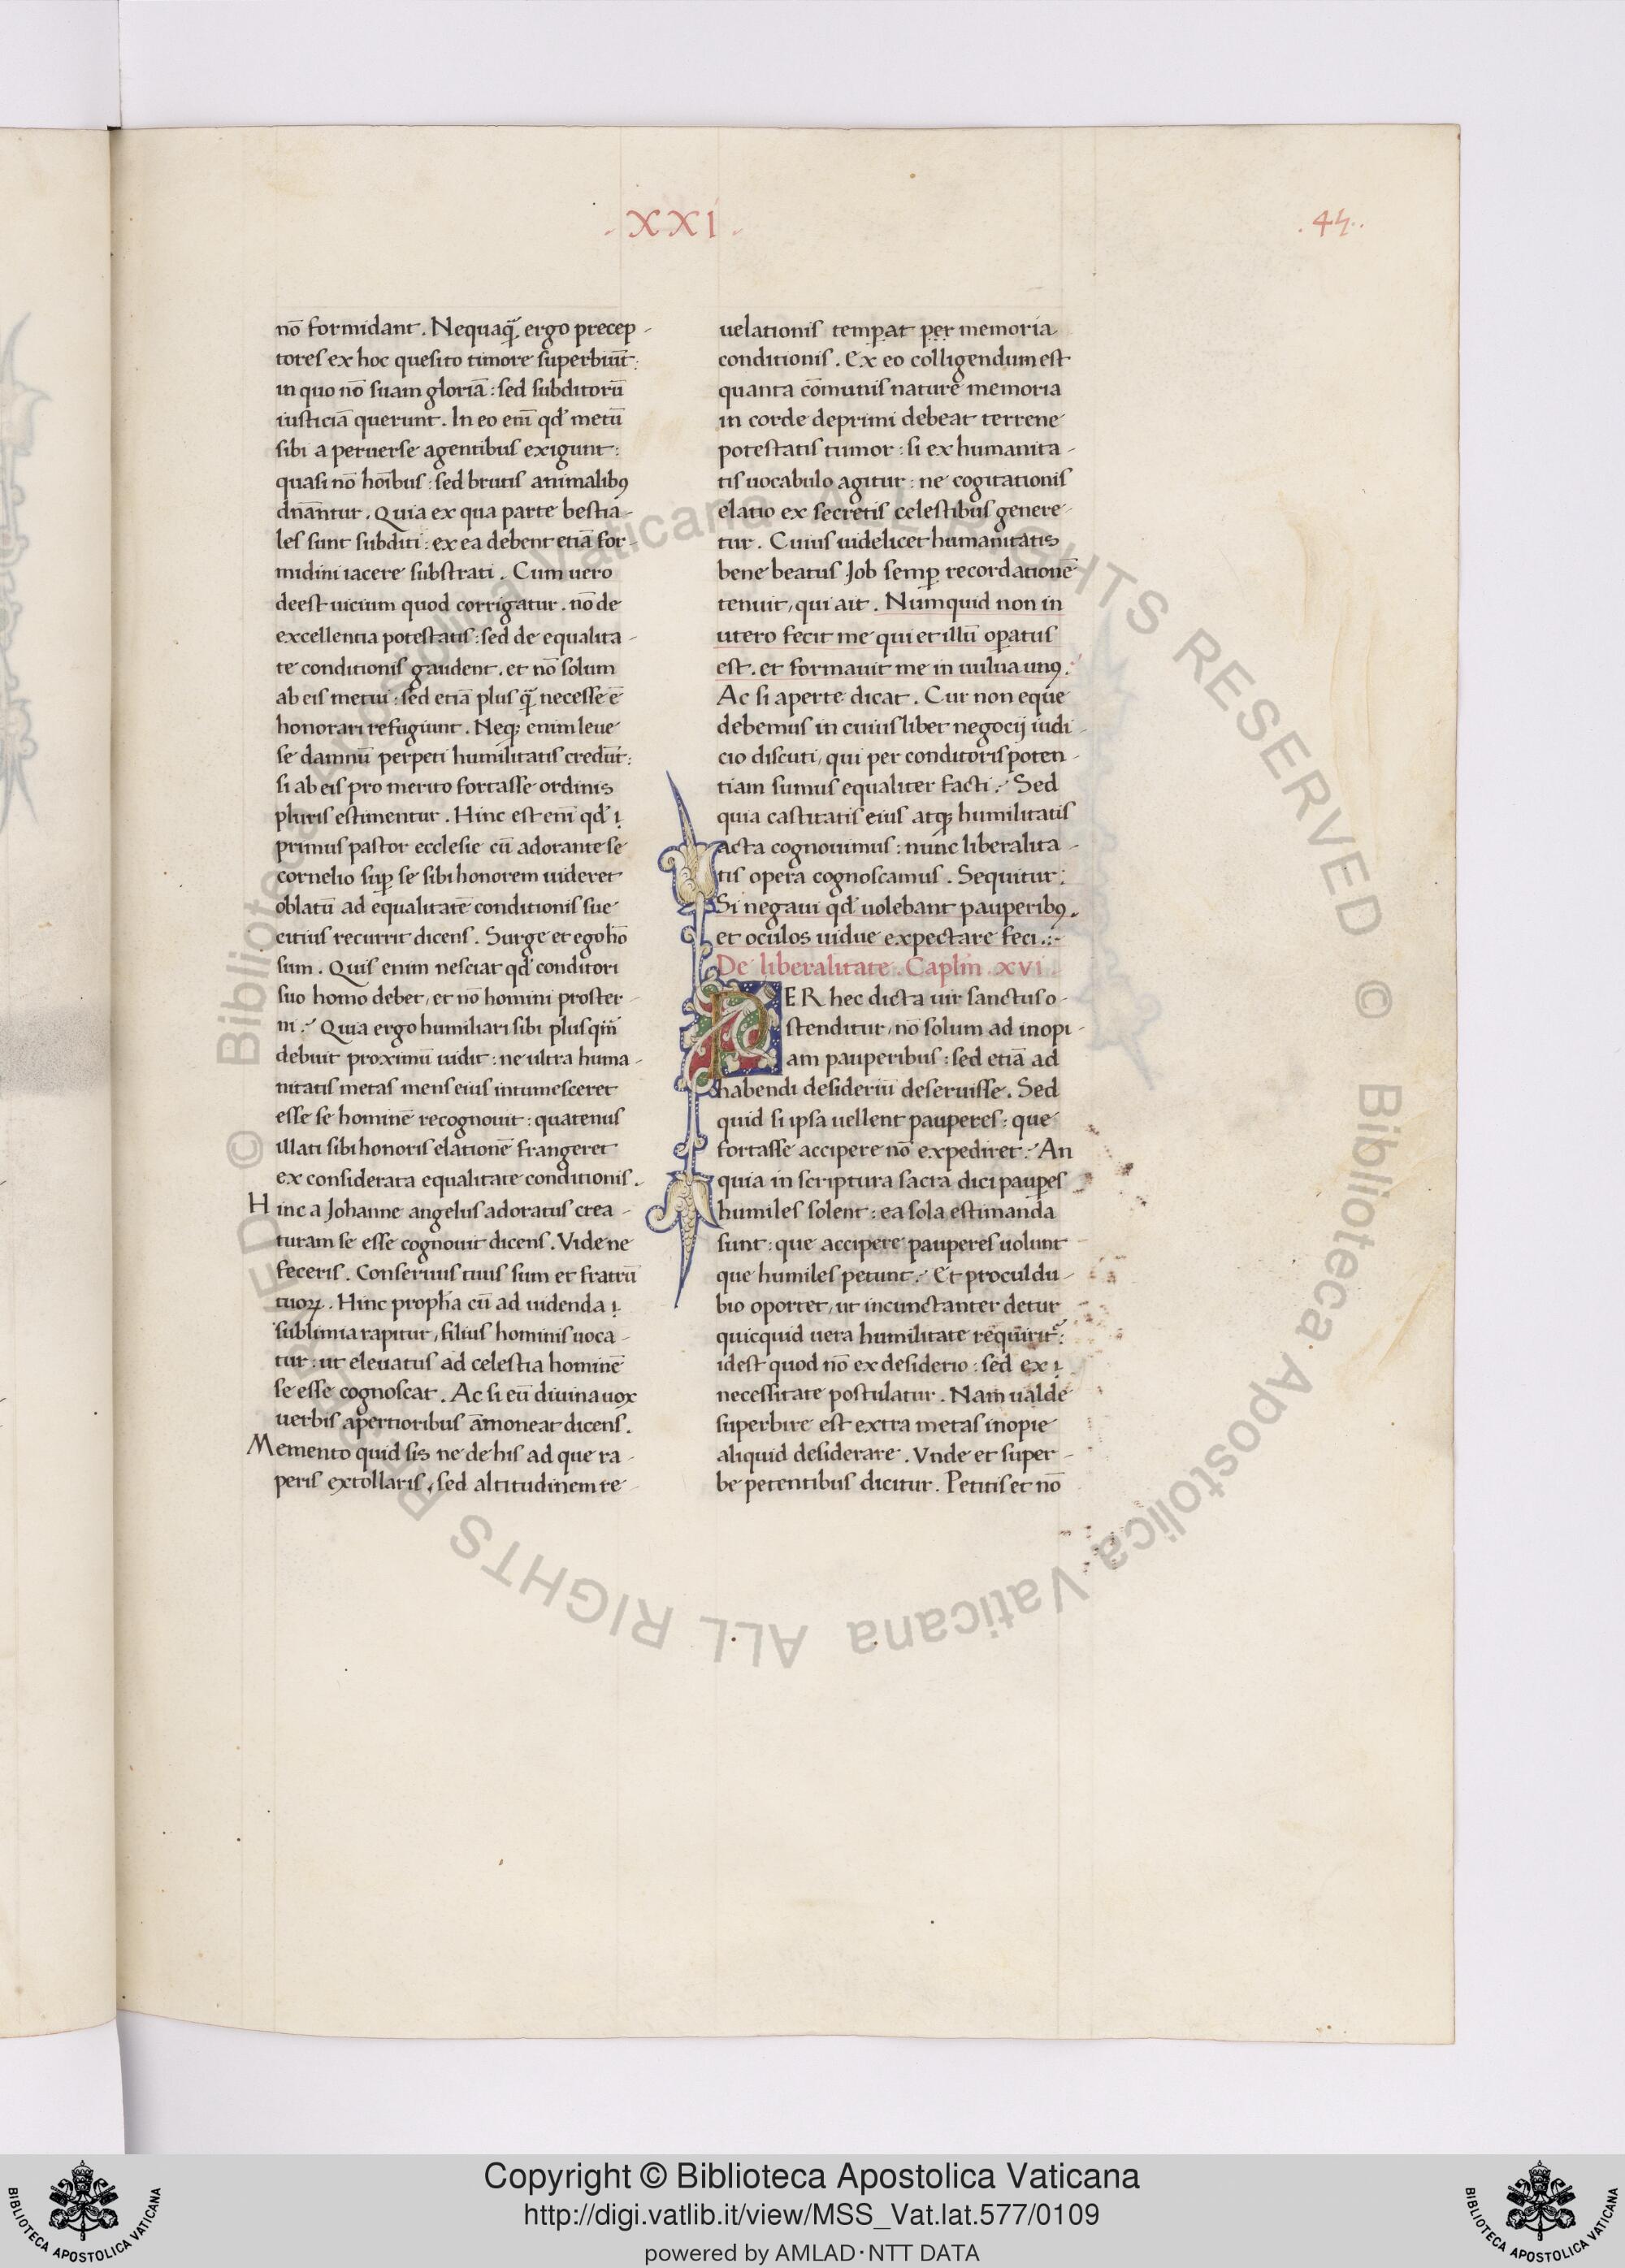 . XXI .
. 45 .
nō formidant . Nequaq̄ ergo precep-
tores ex hoc quesito timore superbiūt:
in quo nō suam gloriā : sed subditorū
iusticiā querunt . In eo enī qd' metū
sibi a peruerse agentibus exigunt:
quasi nō hoībus : sed brutis animalibꝰ
dn̄antur . Quia ex qua parte bestia-
les sunt subditi : ex ea debent etiā for-
midini iacere substrati . Cum uero
deest uicium quod corrigatur . nō de
excellentia potestatis : sed de equalita-
te conditionis gaudent . et nō solum
ab eis metui : sed etiā plus q̄ necesse ē
honorari refugiunt . Neqꝫ enim leue
se damnū perpeti humilitatis credūt:
si ab eis pro merito fortasse ordinis
pluris estimentur . Hinc est enī qd' ı.
primus pastor ecclesie cū adorante se
cornelio suꝑ se sibi honorem uideret
oblatū ad equalitatē conditionis sue
citius recurrit dicens . Surge et ego hō
sum . Quis enim nesciat qd' conditori
suo homo debet, et nō homini proster-
ni . Quia ergo humiliari sibi plusqīn
debuit proximū uidit : ne ultra huma-
nitatis metas mens eius intumesceret
esse se hominē recognouit : quatenus
illati sibi honoris elationē frangeret
ex considerata equalitate conditionis .
Hinc a Johanne angelus adoratus crea-
turam se esse cognouit dicens . Vide ne
feceris . Conseruus tuus sum et fratrū
tuoꝝ . Hinc proph̄a cū ad uidenda ı.
sublimia rapitur, filius hominis uoca-
tur : ut eleuatus ad celestia hominē
se esse cognoscat . Ac si eū diuina uox
uerbis apertioribus āmoneat dicens .
Memento quid sis ne de his ad que ra-
peris extollaris, sed altitudinem re-
uelationis temꝑat per memoria
conditionis . Ex eo colligendum est
quanta cōmunis nature memoria
in corde deprimi debeat terrene
potestatis tumor : si ex humanita-
tis uocabulo agitur : ne cogitationis
elatio ex secretis celestibus genere-
tur . Cuius uidelicet humanitatis
bene beatus Job semꝑ recordationē
tenuit, qui ait . Numquid non in
utero fecit me qui et illū oꝑatus
est . et formauit me in uulua unꝰ .
Ac si aperte dicat . Cur non eque
debemus in cuiuslibet negocij iudi-
cio discuti, qui per conditoris poten-
tiam sumus equaliter facti . Sed
quia castitatis eius atqꝫ humilitatis
acta cognouimus : nunc liberalita-
tis opera cognoscamus . Sequitur:
Si negaui qd' uolebant pauperibꝰ .
et oculos uidue expectare feci .:-
De liberalitate . Caplm̄ . xvi .
PER hec dicta uir sanctus o-
stenditur, nō solum ad inopi-
am pauperibus : sed etiā ad
habendi desideriū deseruisse . Sed
quid si ipsa uellent pauperes : que
fortasse accipere nō expediret . An
quia in scriptura sacra dici pauꝑes
humiles solent : ea sola estimanda
sunt : que accipere pauperes uolunt
que humiles petunt . Et procul du-
bio oportet, ut incunctanter detur
quicquid uera humilitate requirit̄ :
idest quod nō ex desiderio : sed ex ı.
necessitate postulatur . Nam ualde
superbire est extra metas inopie
aliquid desiderare . Vnde et super-
be petentibus dicitur . Petitis et nō
© Biblioteca Apostolica Vaticana ALL RIGHTS RESERVED © Biblioteca Apostolica Vaticana ALL RIGHTS RESERVED
Copyright © Biblioteca Apostolica Vaticana
http://digi.vatlib.it/view/MSS_Vat.lat.577/0109
powered by AMLAD·NTT DATA
BIBLIOTECA APOSTOLICA VATICANA
BIBLIOTECA APOSTOLICA VATICANA